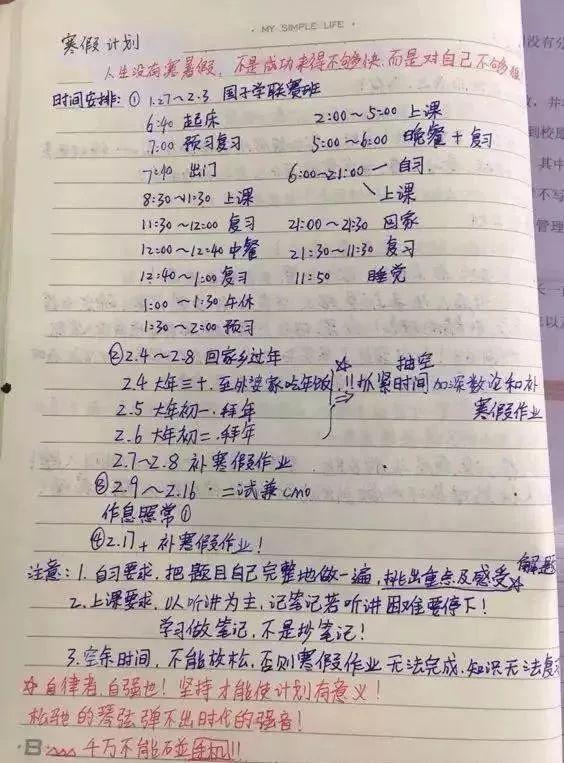 · MY SIMPLE LIFE ·
寒假计划
人生没有寒暑假，不是成功来得不够快，而是对自己不够狠
时间安排：① 1.27～2.3 国子学联赛班
6:40 起床 2:00～5:00 上课
7:00 预习复习 5:00～6:00 晚餐+复习
7:40 出门 6:00～21:00 — 自习
8:30～11:30 上课 上课
11:30～12:00 复习 21:00～21:30 回家
12:00～12:40 中餐 21:30～11:30 复习
12:40～1:00 复习 11:50 睡觉
1:00～1:30 午休
1:30～2:00 预习
② 2.4～2.8 回家乡过年
2.4 大年三十，至外婆家吃年饭 !! 抓紧时间抽空加深数论和补
2.5 大年初一，拜年 寒假作业
2.6 大年初二，拜年
2.7～2.8 补寒假作业
③ 2.9～2.16 · 二试兼cmo
作息照常①
④ 2.17+ 补寒假作业！
注意：1. 自习要求，把题目自己完整地做一遍，挑出重点及解题感受
2. 上课要求，以听讲为主，记笔记若听讲困难要停下！
学习做笔记，不是抄笔记！
3. 空余时间，不能放松，否则寒假作业无法完成，知识无法复
☆ 自律者，自强也！坚持才能使计划有意义！
松驰的琴弦弹不出时代的强音！
千万不能碰手机!!!
没有分
到校
其中
不写
管理